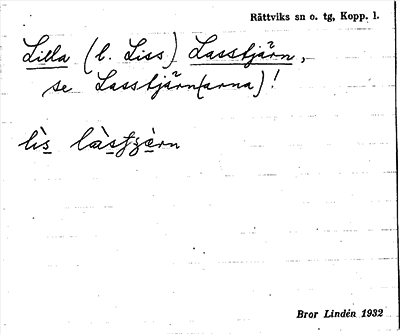 Rättviks sn o. tg, Kopp. l.
Lilla (l. Liss) Lasstjärn,
se Lasstjärn(arna)!
Bror Lindén 1932